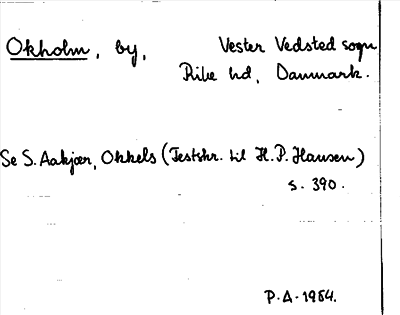 Okholm, by, Vester Vedsted sogn
Ribe hd, Danmark.
Se S. Aakjær, Okkels (Festskr. til H. P. Hansen)
s. 390.
P.A. 1954.